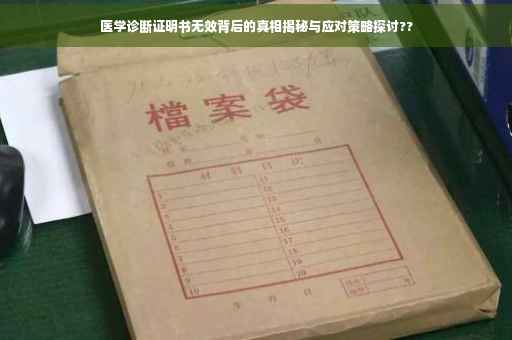 医学诊断证明书无效背后的真相揭秘与应对策略探讨??
檔案袋
材料目次
1 11
2 12
3 13
4 14
5 15
6 16
7 17
8 18
9 19
10 20
年 月 日